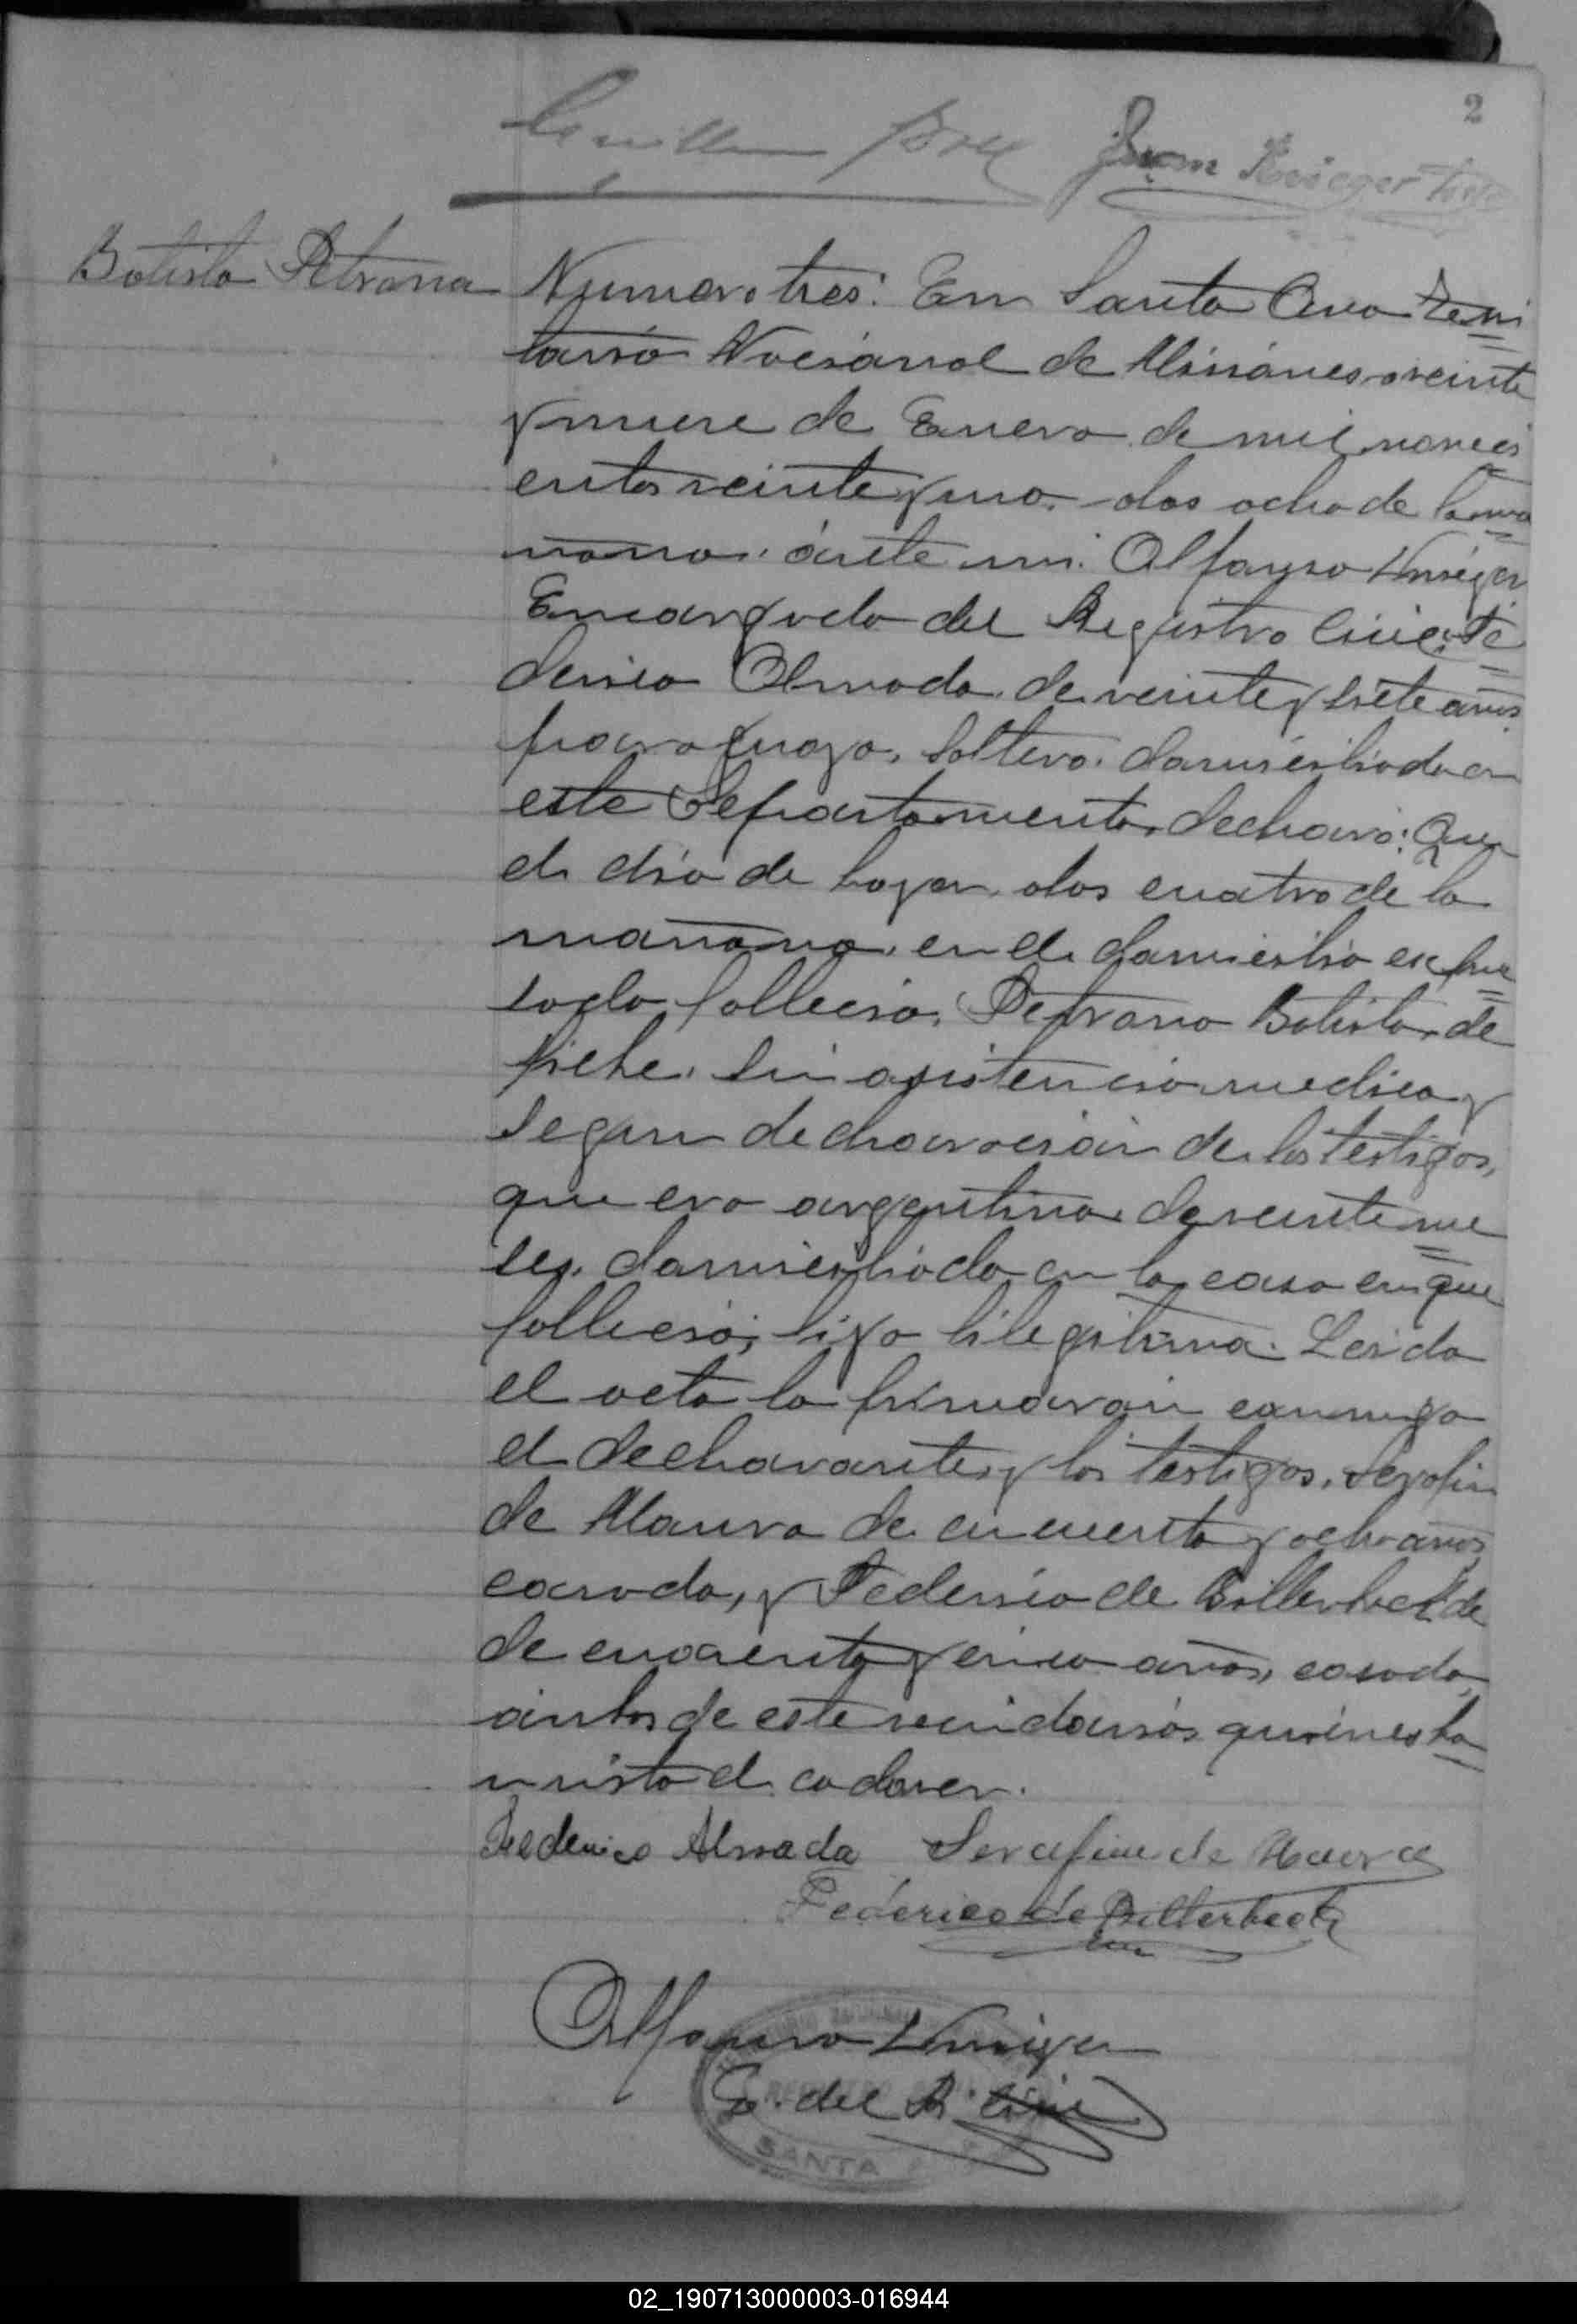 2
Juan Krieger
Batista Petrona
Numero tres: En Santa Ana Terri
torio Nacional de Misiones a veinte
y nueve de Enero de mil noveci
entos veinte y uno. a las ocho de la ma
ñana. ante mi. Alfonso
Encargado del Registro Civil, Fe
derico Almada. de veinte y siete años
paraguayo, soltero. domiciliado en
este Departamento, declaró: Que
el dia de hoy a las cuatro de la
mañana, en el domicilio expre
sado falleció, Petrona Batista, de
fiebe. sin asistencia medica y
segun declaración de los testigos,
que era argentina de veinte me
ses, domiciliada en la casa en que
falleció, hija ilegitima. Leida
el acta la firmaron conmigo
el declarante, y los testigos. Serafin
de Maura de cincuenta y ocho años
casado, y Federico de Billerbeck de
de cuarenta y cinco años, casado,
ambos de este vecindario, quienes ha
n visto el cadaver.
Federico Almada Serafin de Maura
Federico de Billerbeck
Alfonso
E. del R. Civil
SANTA
02_190713000003-016944